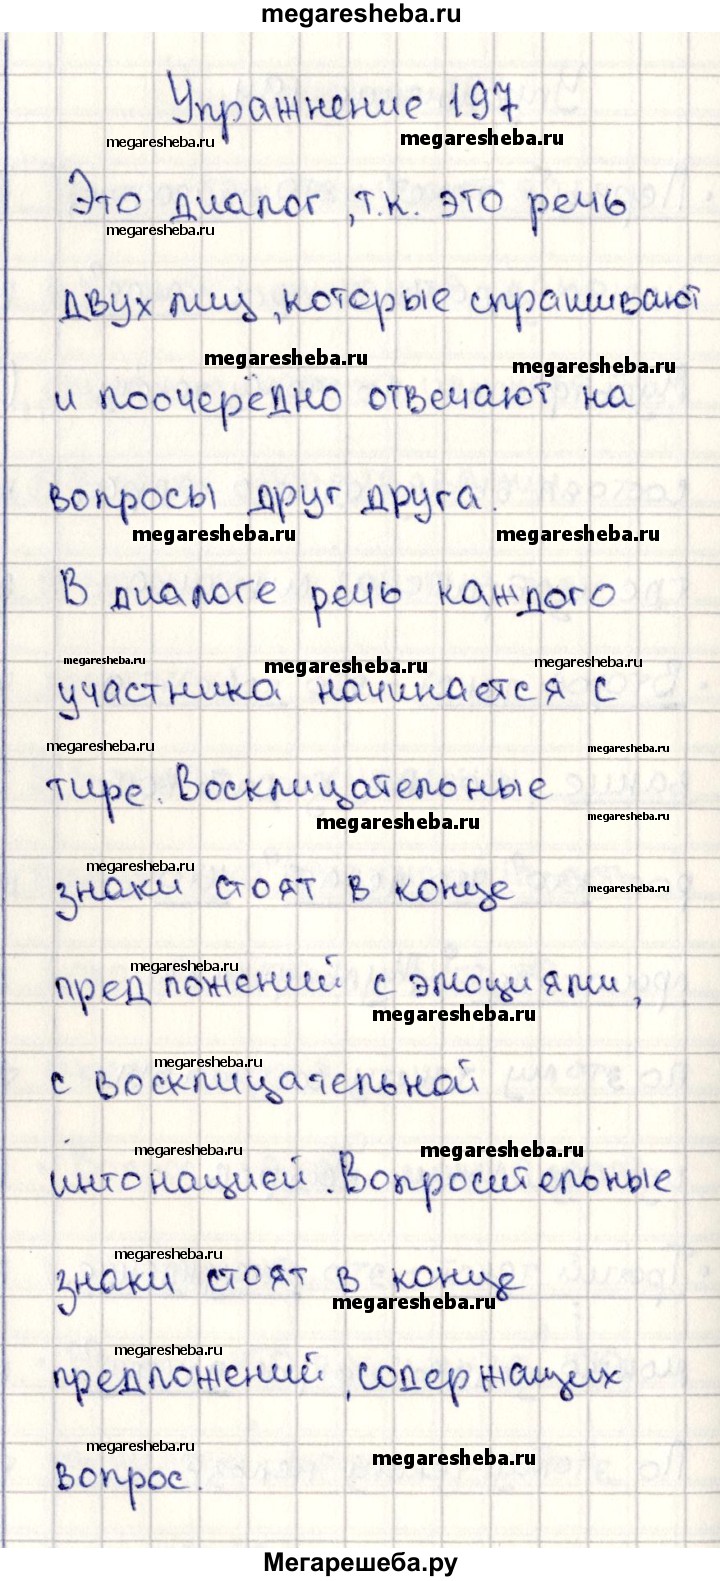 megaresheba.ru
Упражнение 197
megaresheba.ru megaresheba.ru
Это диалог, т.к. это речь
megaresheba.ru
двух лиц, которые спрашивают
megaresheba.ru megaresheba.ru
и поочерёдно отвечают на
вопросы друг друга.
megaresheba.ru megaresheba.ru
В диалоге речь каждого
megaresheba.ru megaresheba.ru megaresheba.ru
участника начинается с
megaresheba.ru megaresheba.ru
тире. Восклицательные
megaresheba.ru megaresheba.ru
megaresheba.ru
знаки стоят в конце
megaresheba.ru
megaresheba.ru
предложений с эмоциями,
megaresheba.ru
megaresheba.ru
с восклицательной
megaresheba.ru megaresheba.ru
интонацией. Вопросительные
megaresheba.ru
знаки стоят в конце
megaresheba.ru
megaresheba.ru
предложений, содержащих
megaresheba.ru megaresheba.ru
вопрос.
Мегарешеба.ру